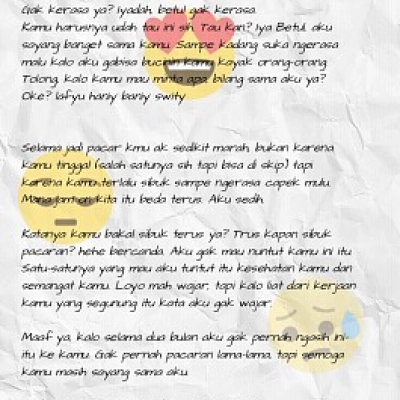 Gak kerasa ya? Iyadah, betul gak kerasa.
Kamu harusnya udah tau ini sih. Tau kan? Iya Betul, aku
sayang banget sama kamu. Sampe kadang suka ngerasa
malu kalo aku gabisa bucinin kamu kayak orang-orang.
Tolong, kalo kamu mau minta apa, bilang sama aku ya?
Oke? lafyu haniy baniy swity
Selama jadi pacar kmu ak sedikit marah, bukan karena
kamu tinggal (salah satunya sih tapi bisa di skip) tapi
karena kamu terlalu sibuk sampe ngerasa capek mulu.
Mana jam on kita itu beda terus. Aku sedih.
Katanya kamu bakal sibuk terus ya? Trus kapan sibuk
pacaran? hehe bercanda. Aku gak mau nuntut kamu ini itu.
Satu-satunya yang mau aku tuntut itu kesehatan kamu dan
semangat kamu. Loyo mah wajar, tapi kalo liat dari kerjaan
kamu yang segunung itu kata aku gak wajar.
Maaf ya, kalo selama dua bulan aku gak pernah ngasih ini-
itu ke kamu. Gak pernah pacaran lama-lama, tapi semoga
kamu masih sayang sama aku.